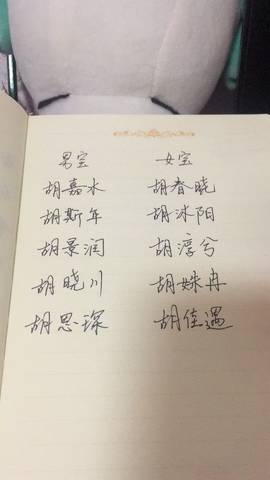 男宝 女宝
胡嘉水 胡春晓
胡斯年 胡沐阳
胡景润 胡淳兮
胡晓川 胡姝冉
胡思琛 胡佳遇